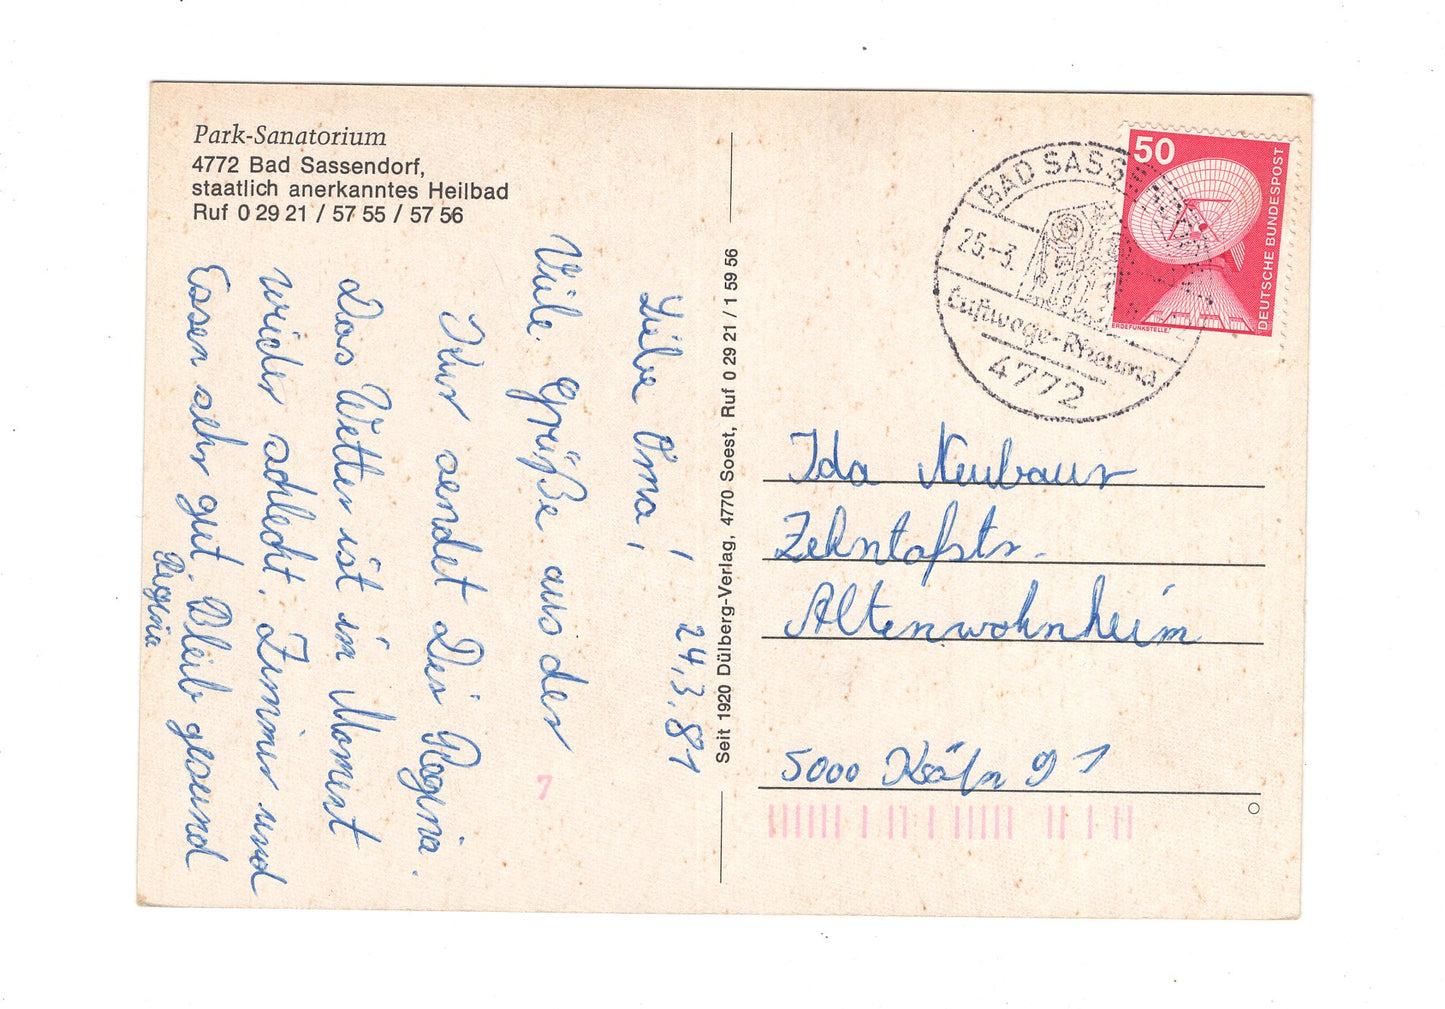 Park-Sanatorium
4772 Bad Sassendorf,
staatlich anerkanntes Heilbad
Ruf 0 29 21 / 57 55 / 57 56
24.3.81
Liebe Oma!
Viele Grüße aus der
Kur sendet Dir Regina.
Das Wetter ist im Moment
wieder schlecht. Zimmer und
Essen sehr gut. Bleib gesund
Regina
Seit 1920 Dülberg-Verlag, 4770 Soest, Ruf 0 29 21 / 1 59 56
BAD SASSE
25.-3.
4772
50
DEUTSCHE BUNDESPOST
ERDEFUNKSTELLE
Ida Neubaur
Zehntofstr.
Altenwohnheim
5000 Köln 91
7